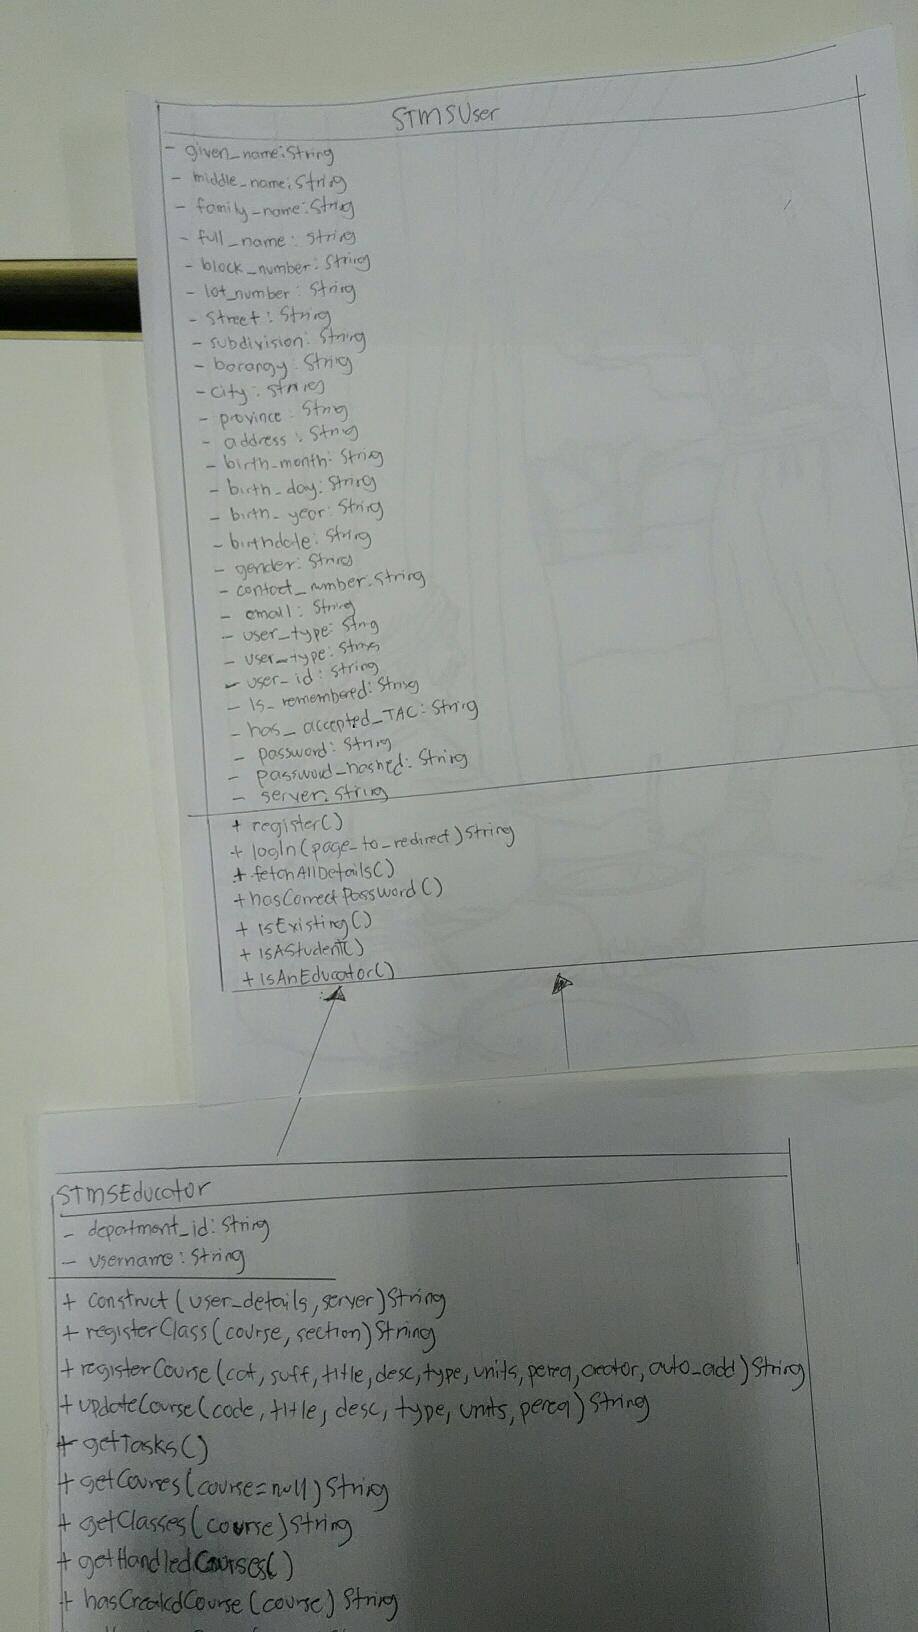 STMSUser
- given_name:String
- middle_name:String
- family_name:String
- full_name: String
- block_number:String
- lot_number: String
- Street: String
- subdivision: String
- barangy: String
- city: String
- province: String
- address: String
- birth_month: String
- birth_day: String
- birth_year: String
- birthdate: String
- gender: String
- contact_number:String
- email: String
- user_type: String
- user_type: String
- user_id: String
- Is_remembered: String
- has_accepted_TAC: String
- password: String
- password_hashed: String
- server: String
+ register()
+ logIn(page_to_redirect)String
+ fetchAllDetails()
+ hasCorrectPassword()
+ isExisting()
+ isAStudent()
+ isAnEducator()
STMSEducator
- department_id: String
- username: String
+ construct(user_details, server)String
+ registerClass(course, section)String
+ registerCourse(cat, suff, title, desc, type, units, pereq, creator, auto_add)String
+ updateCourse(code, title, desc, type, units, pereq)String
+ getTasks()
+ getCourses(course=null)String
+ getClasses(course)String
+ getHandledCourses()
+ hasCreatedCourse(course)String